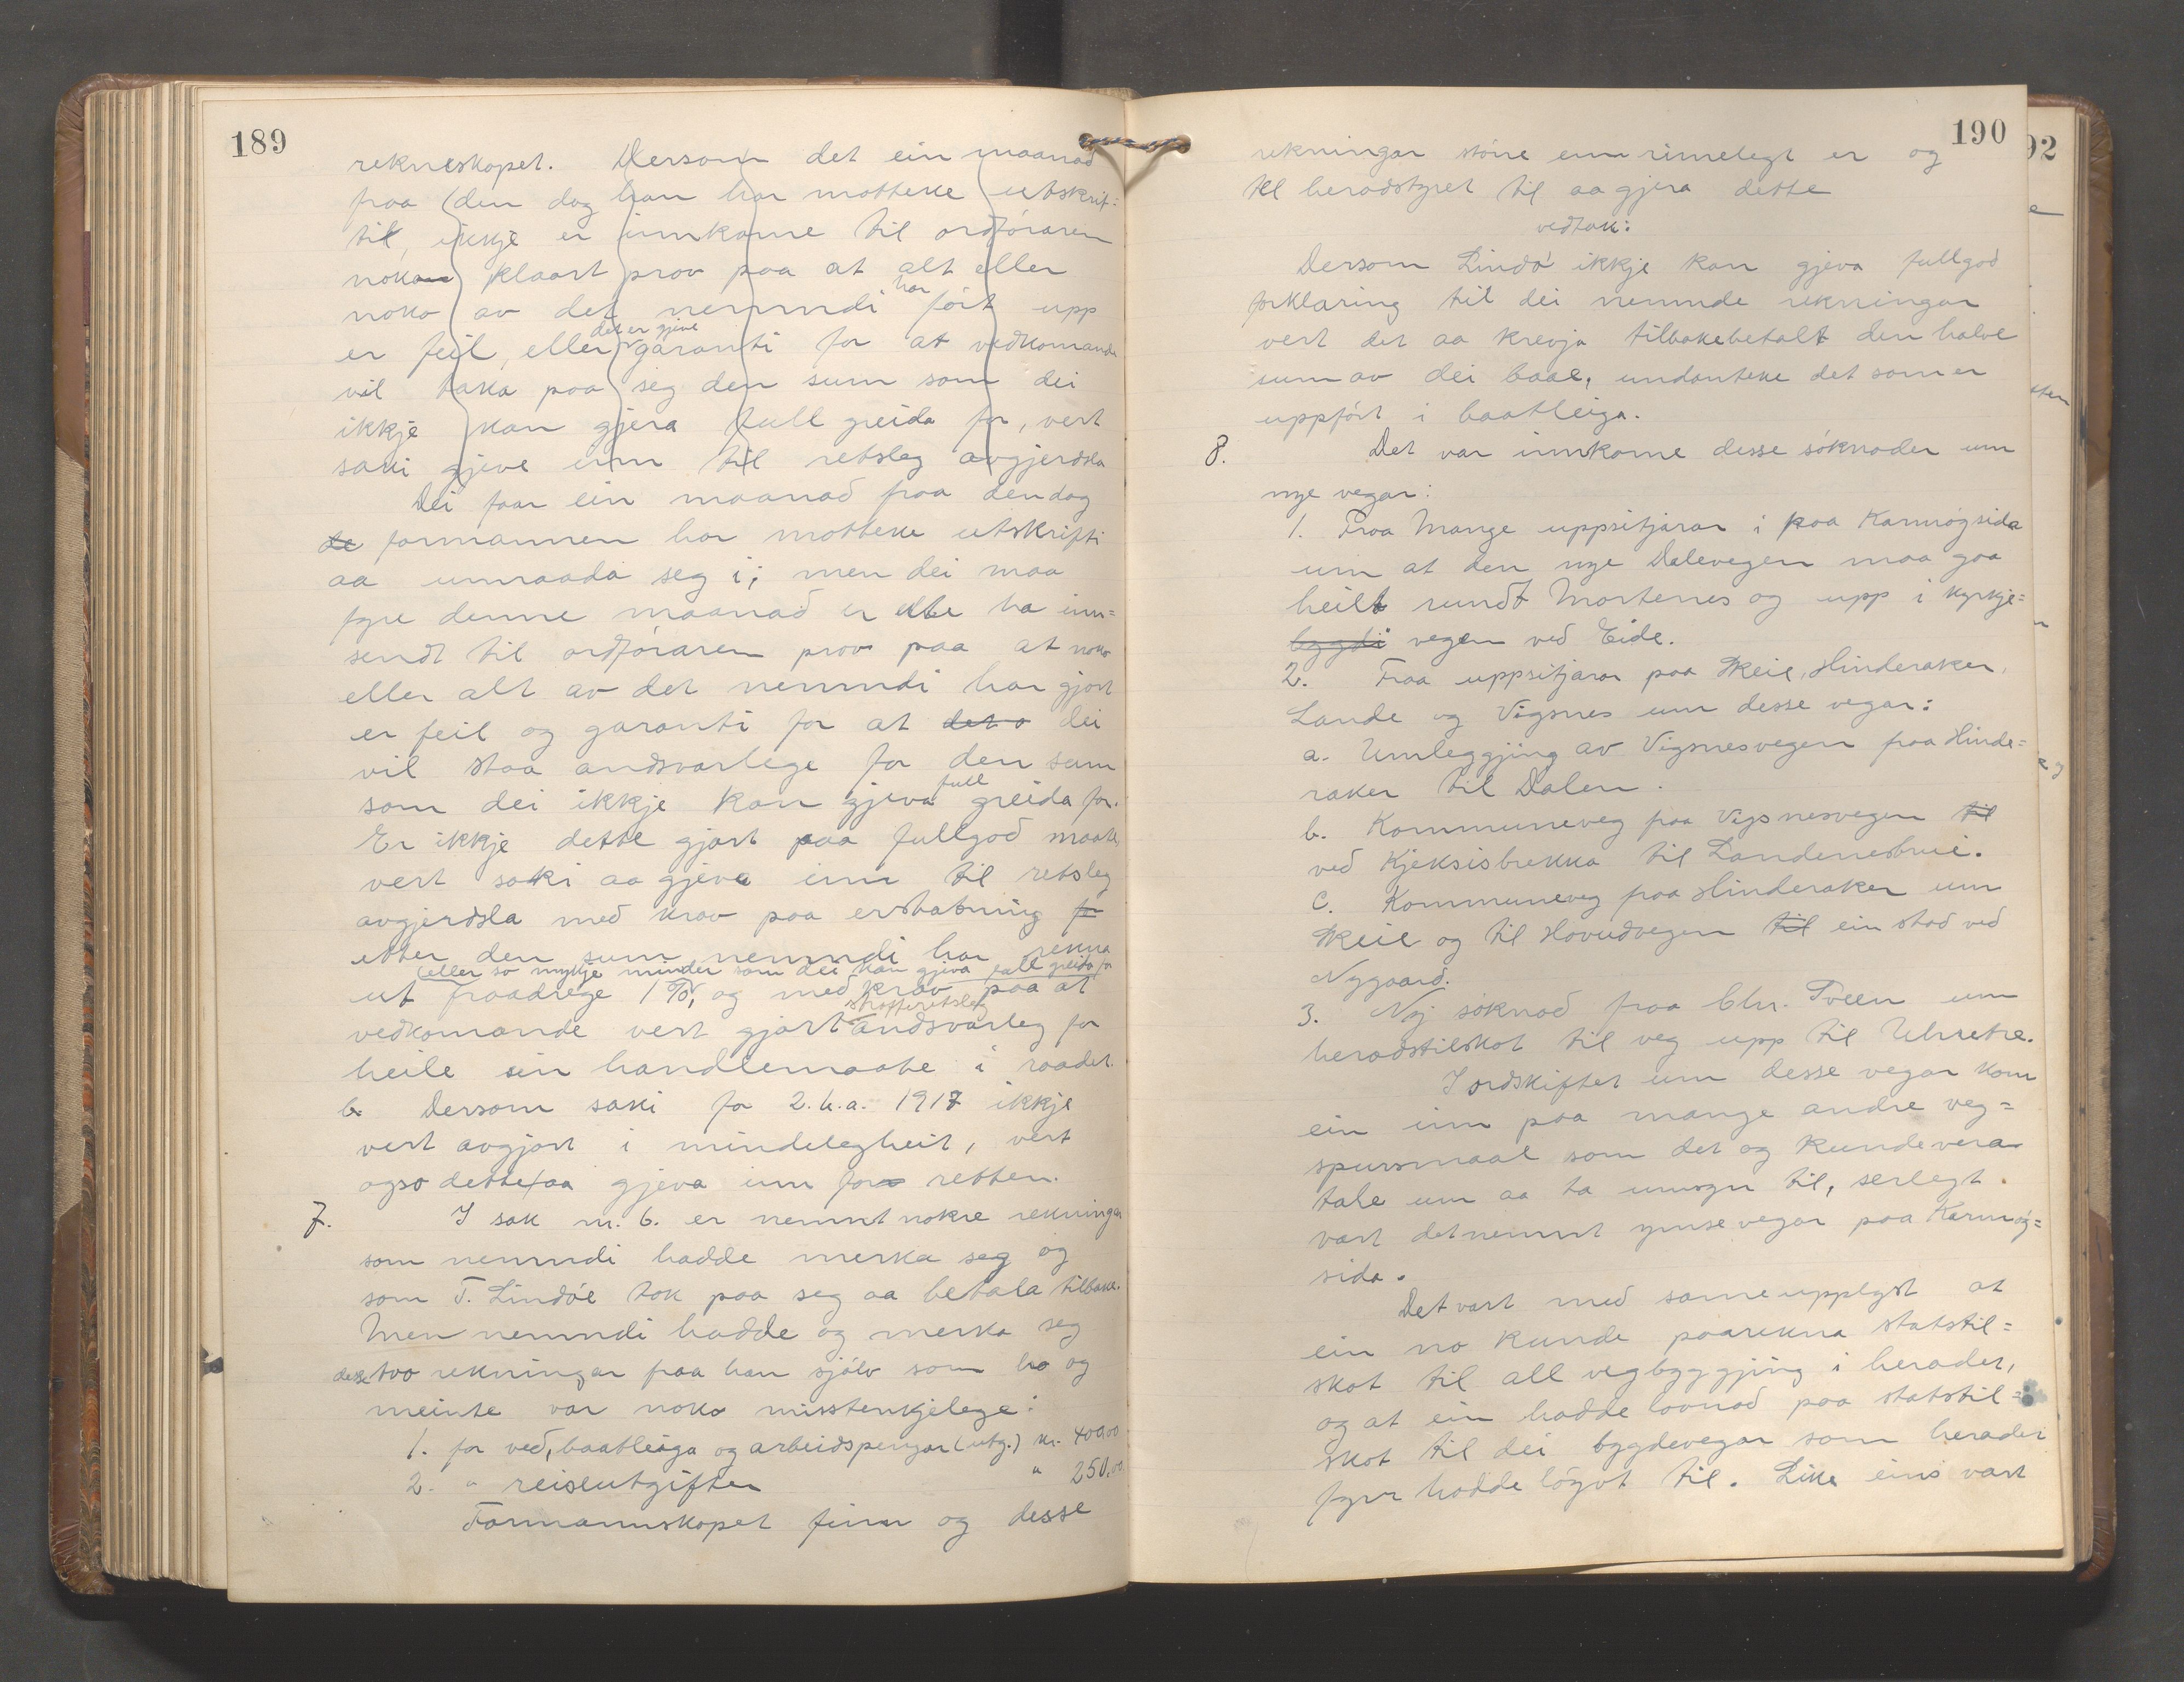 189
rekneskapet. Dersom det ein maanad
fraa den dag han har motteke utskrif=
til, ikkje er innkome til ordføraren
noko klaart prov paa at alt eller
noko av det nemndi har ført upp
er feil, eller det er gjeve garanti for at vedkomande
vil taka paa seg den sum som dei
ikkje kan gjera full greida for, vert
saki gjeve inn til retsleg avgjerdsla
Dei faar ein maanad fraa den dag
de formannen har motteke utskrifti
aa umraada seg i; men dei maa
fyre denne maanad er ute ha inn=
sendt til ordføraren prov paa at noko
eller alt av det nemndi har gjort
er feil og garanti for at det o dei
vil staa andsvarlege for den sum
som dei ikkje kan gjeva full greida for.
Er ikkje dette gjort paa fullgod maate,
vert saki aa gjeva inn til retsleg
avgjerdsla med krav paa erstatning for
etter den sum nemndi har rekna
(eller so mykje minder som dei kan gjeva full greida for
ut fraadrege 1 %, og med krav paa at
vedkomande vert gjort strafferetsleg andsvarleg for
heile sin handlemaate i raadet.
b. Dersom saki for 2. h.a. 1917 ikkje
vert avgjort i mindelegheit, vert
ogso dette aa gjeva inn for retten.
7. I sak nr. 6. er nemnt nokre rekningar
som nemndi hadde merka seg og
som T. Lindøe tok paa seg aa betala tilbake.
Men nemndi hadde og merka seg
desse tvo rekningar fraa han sjølv som ho og
meinte var noko misstenkjelege:
1. for ved, baatleiga og arbeidspengar (utg.) kr. 400,00
2. " reiseutgifter " 250,00
Formannskapet finn og desse
190
rekningar større enn rimelegt er og
til heradstyret til aa gjera dette
vedtak:
Dersom Lindø ikkje kan gjeva fullgod
forklaring til dei nemnde rekningar
vert det aa krevja tilbakebetalt den halve
sum av dei baae, undanteke det som er
uppført i baatleiga.
8. Det var innkome desse søknader um
nye vegar:
1. Fraa Mange uppsitjarar i paa Karmøysida
um at den nye Dalevegen maa gaa
heilt rundt Mortenes og upp i kyrkje=
bygdi vegen ved Eide.
2. Fraa uppsitjarar paa Skeie, Hinderaker,
Lande og Vigsnes um desse vegar:
a. Umleggjing av Vigsnesvegen fraa Hinde=
raker til Dalen.
b. Kommuneveg fraa Vigsnesvegen til
ved Kjeksisbrekka til Landenesbrui.
c. Kommuneveg fraa Hinderaker um
Skeie og til Hovudvegen til ein stad ved
Nygaard.
3. Ny søknad fraa Chr. Tveen um
heradstilskot til veg upp til
I ordskiftet um desse vegar kom
ein inn paa mange andre veg=
spursmaal som det og kunde vera
tale um aa ta umsyn til, serlegt
vart det nemnt ymse vegar paa Karmøy=
sida.
Det vart med same upplyst at
ein no kunde paarekna statstil=
skot til all vegbyggjing i heradet,
og at ein hadde lovnad paa statstil=
skot til dei bygdevegar som heradet
fyrr hadde løyvt til. Like eins vart
92